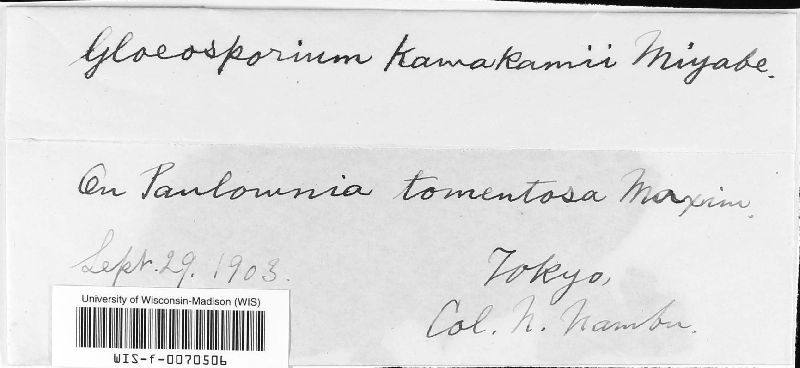 Gloeosporium Kawakamii Miyabe.
On Paulownia tomentosa Maxim.
Sept. 29. 1903.
Tokyo,
Col. N. Nambu.
University of Wisconsin-Madison (WIS)
WIS-f-0070506